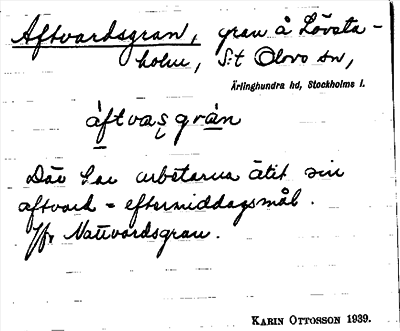 Aftvardsgran, gran å Lövsta-
holm, S:t Olovs sn,
Ärlinghundra hd, Stockholms l.
àftvasgràn
Där har arbetarna ätit sin
aftvard = eftermiddagsmål.
Jfr Nattvardsgran.
KARIN OTTOSSON 1939.